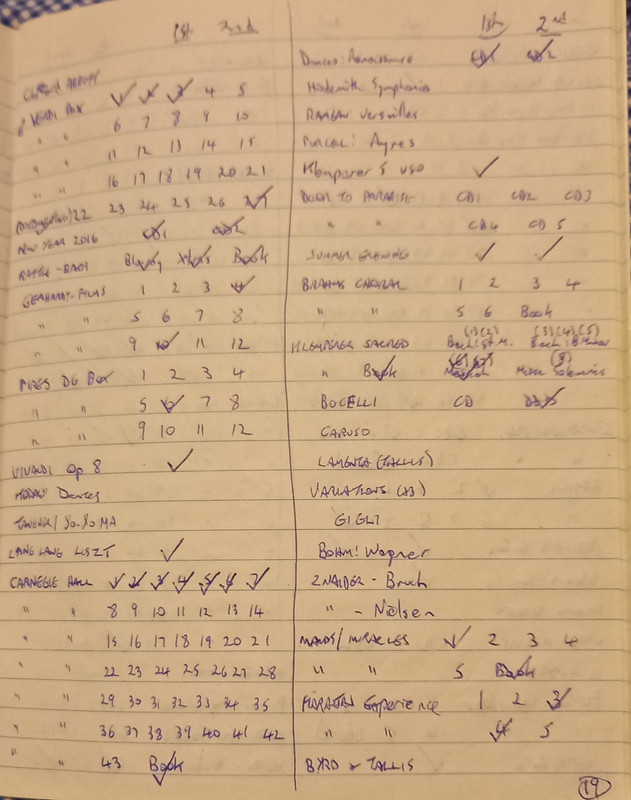 1st 2nd
✓ ✓ 3 4 5
" " 6 7 8 9 10
" " 11 12 13 14 15
" " 16 17 18 19 20 21
22 23 24 25 26 27
NEW YEAR 2016 CD1 CD2
RATTLE - BACH Book
GERHARDT - FILMS 1 2 3 4
" " 5 6 7 8
" " 9 10 11 12
PIRES DG BOX 1 2 3 4
" " 5 6 7 8
" " 9 10 11 12
VIVALDI Op 8 ✓
HAYDN Dances
TAVENER / YO-YO MA
LANG LANG LISZT ✓
CARNEGIE HALL 1 2 3 4 5 6 7
" " 8 9 10 11 12 13 14
" " 15 16 17 18 19 20 21
" " 22 23 24 25 26 27 28
" " 29 30 31 32 33 34 35
" " 36 37 38 39 40 41 42
" " 43 Book
1st 2nd
Dances: Renaissance CD1 CD2
Hindemith: Symphonia
RAMEAU Versailles
PURCELL: Ayres
Klemperer 5 ✓
DOOR TO PARADISE CD1 CD2 CD3
" " CD4 CD5
SUMMER EVENING ✓ ✓
BRAHMS CHORAL 1 2 3 4
" " 5 6 Book
(1)(2) (3)(4)(5)
KLEMPERER SACRED Bach: St. M. Bach: B Minor
(6)(7) (8)
" Book Messiah Missa Solemnis
BOCELLI CD DVD
CARUSO
LAMENTA (TALLIS)
VARIATIONS (x3)
GIGLI
BOHM: Wagner
ZNAIDER - Bruch
" - Nielsen
MAUDS / MIRACLES ✓ 2 3 4
" " 5 Book
Experience 1 2 3
" " 4 5
BYRD & TALLIS
19